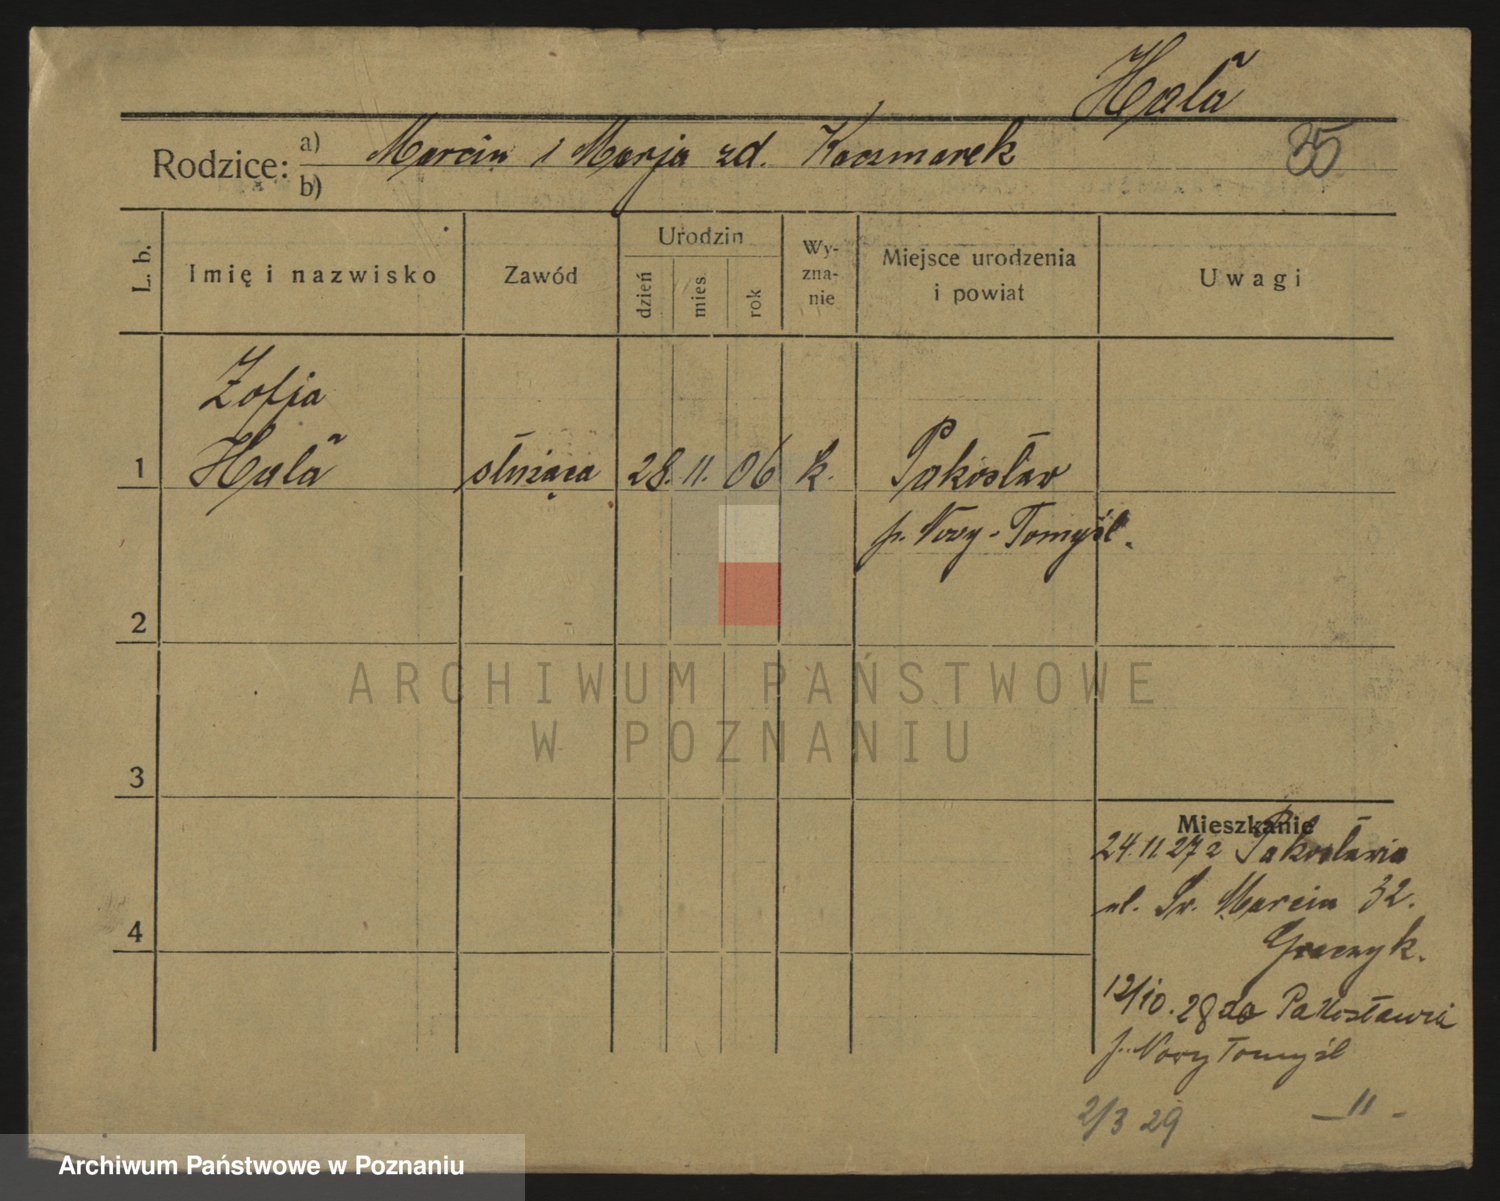 Hała
Rodzice: a) Marcin i Marja zd. Kaczmarek 35
b)
L. b. Imię i nazwisko Zawód Urodzin dzień mies. rok Wy-zna-nie Miejsce urodzenia i powiat Uwagi
Zofja
1 Hała służąca 28. 11. 06 k. Pakosław
p. Nowy-Tomyśl.
2
ARCHIWUM PAŃSTWOWE
W POZNANIU
3
Mieszkanie
24.11.27 z Pakosławia
ul. Św. Marcin 32.
4 Graczyk.
12/10.28 do Pakosławia
p. Nowy Tomyśl
2/3 29 — " -
Archiwum Państwowe w Poznaniu